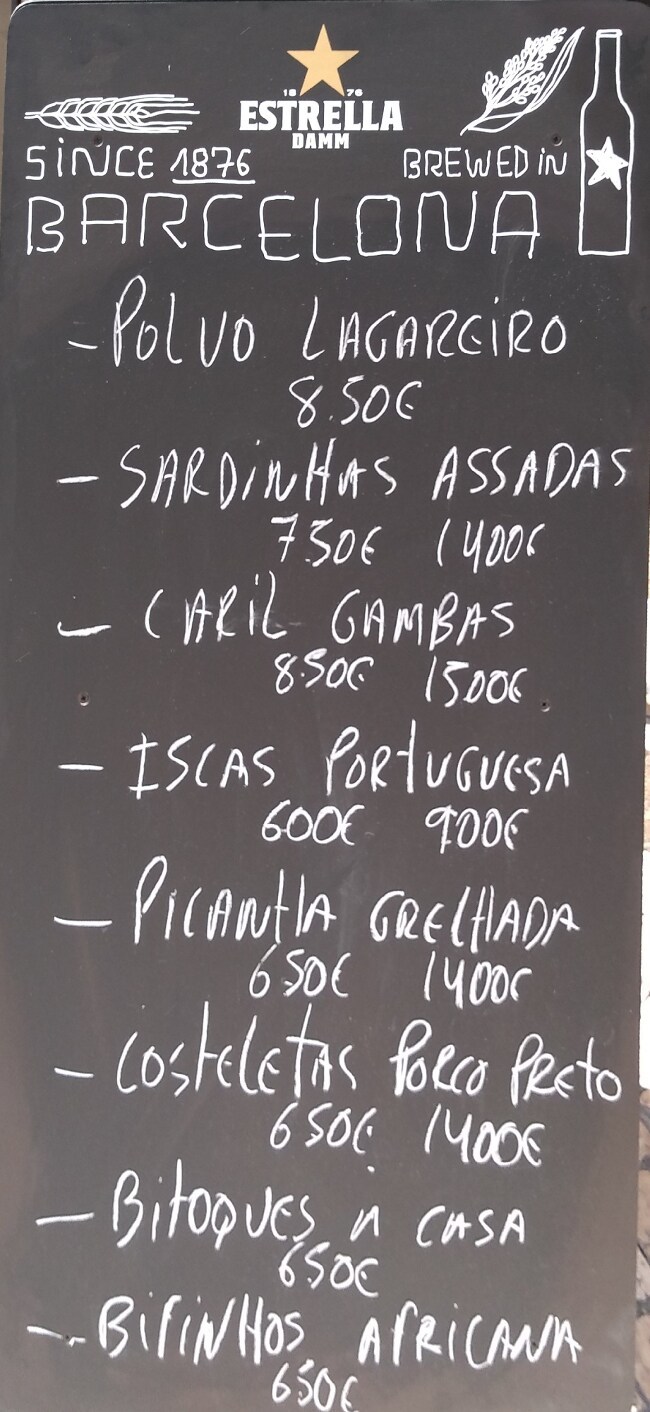 18 76
ESTRELLA
DAMM
SINCE 1876 BREWED IN
BARCELONA
- POLVO LAGAREIRO
8.50€
- SARDINHAS ASSADAS
750€ 1400€
- CARIL GAMBAS
8.50€ 1500€
- ISCAS PORTUGUESA
600€ 900€
- PICANHA GRELHADA
650€ 1400€
- COSTELETAS PORCO PRETO
650€ 1400€
- BITOQUES A CASA
650€
- BIFINHOS AFRICANA
650€